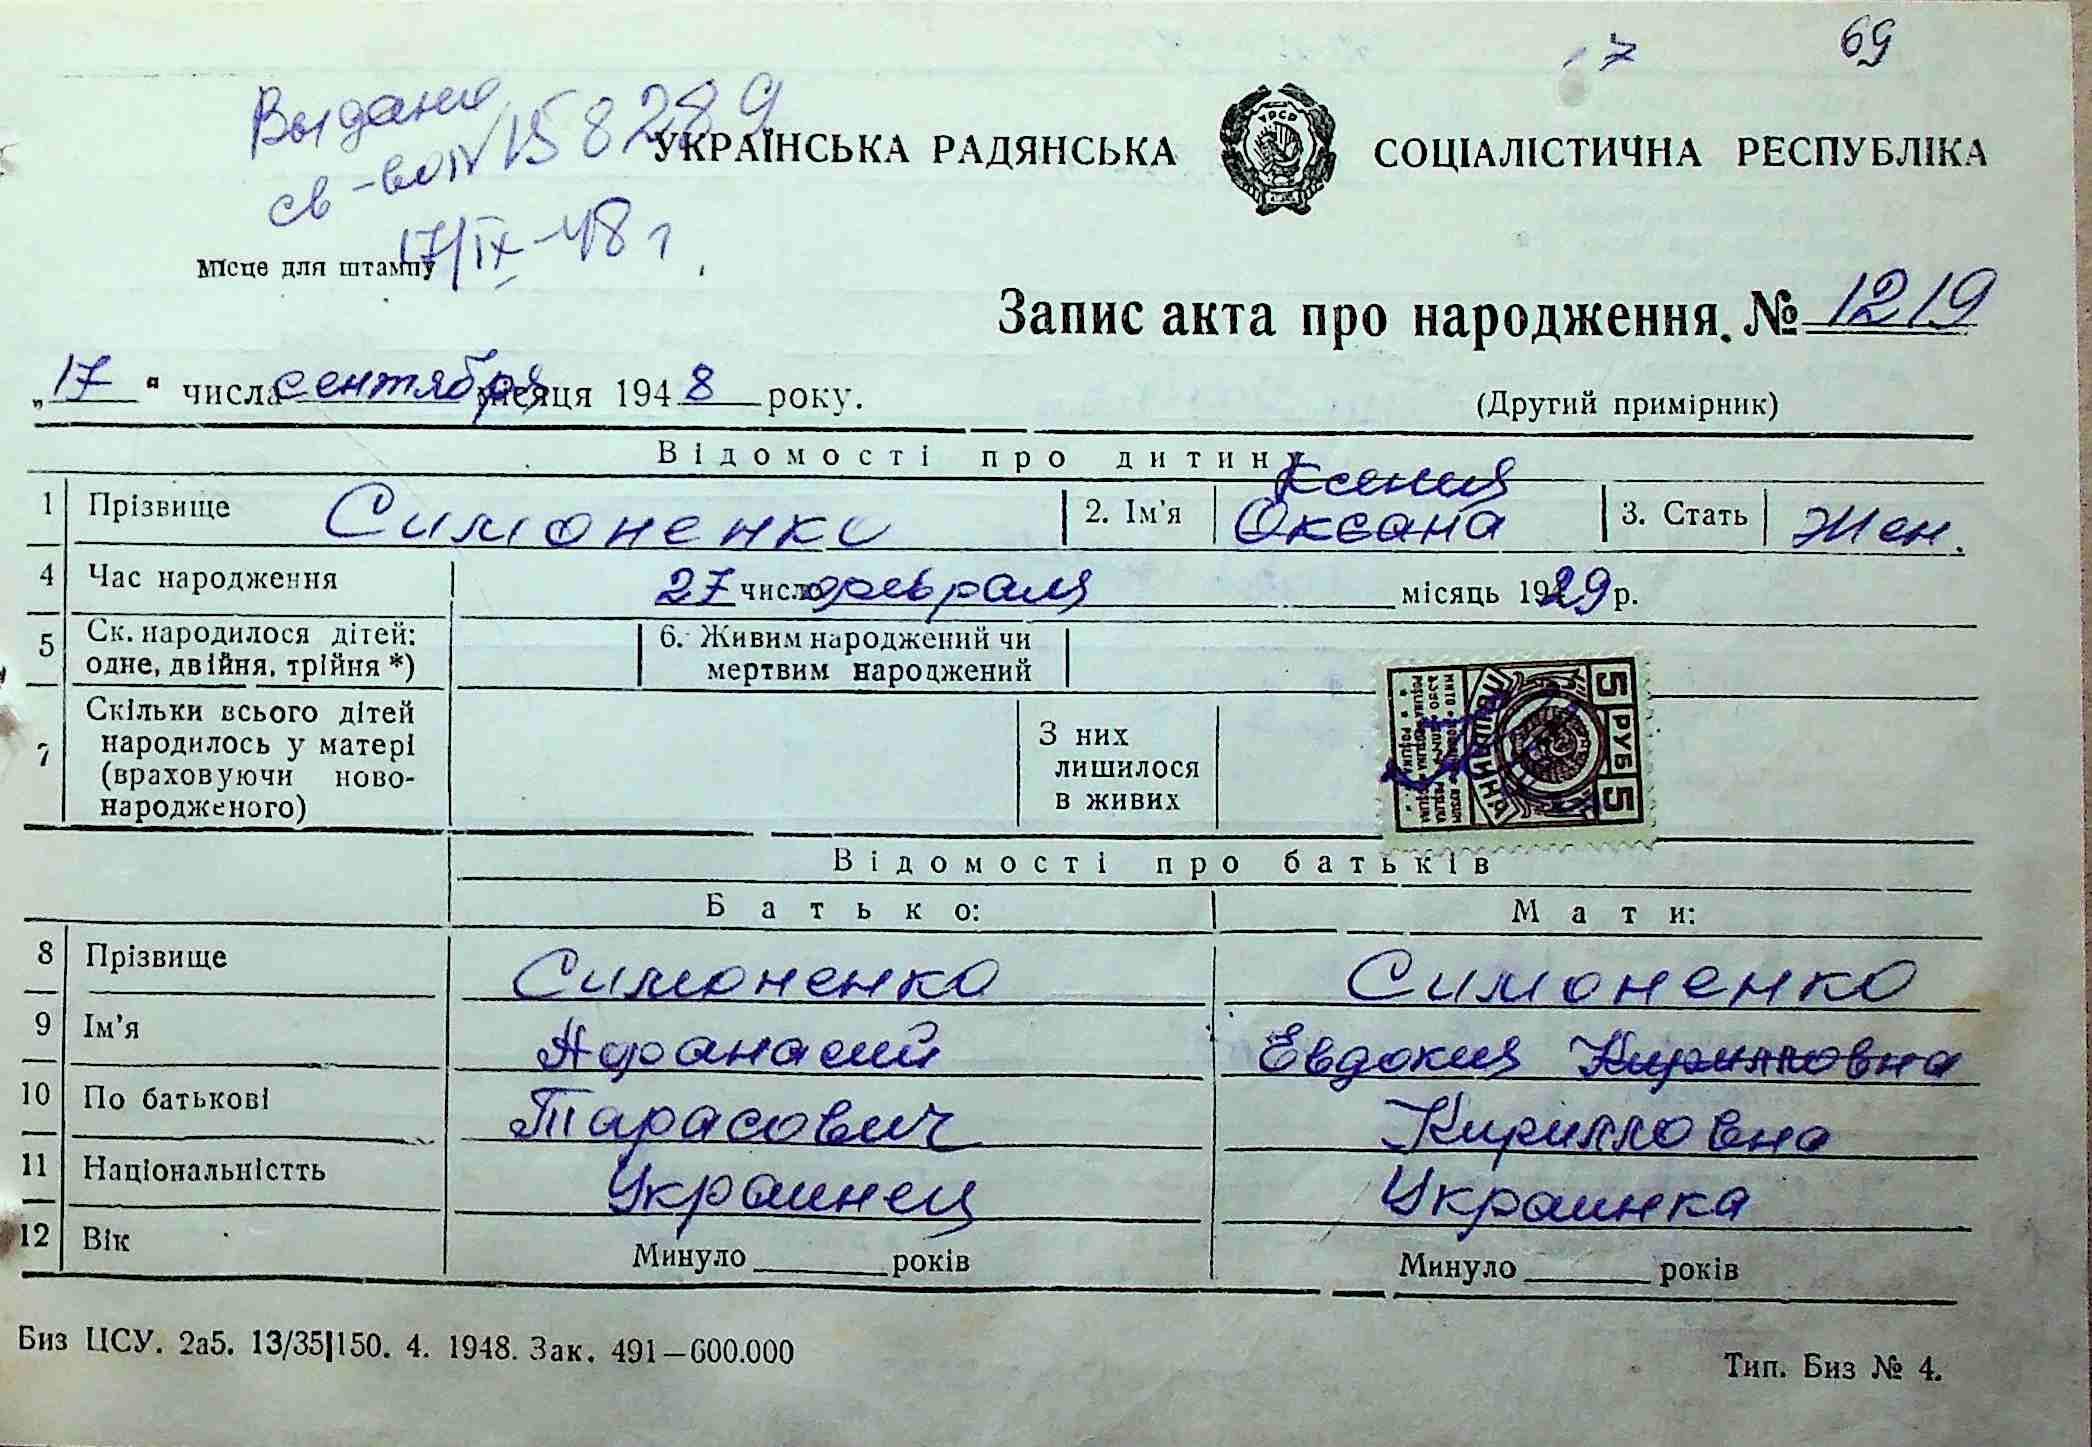 69
7
Выдано
св-во № 158289
17/IX-48 г
УКРАЇНСЬКА РАДЯНСЬКА СОЦІАЛІСТИЧНА РЕСПУБЛІКА
УРСР
Місце для штампу
Запис акта про народження. № 1219
„17“ числа сентября місяця 1948 року.
(Другий примірник)
Відомості про дитину
Ксения
1 Прізвище Симоненко 2. Ім'я Оксана 3. Стать Жен.
4 Час народження 27 число февраля місяць 1929 р.
5 Ск. народилося дітей: 6. Живим народжений чи
одне, двійня, трійня *) мертвим народжений
7 Скільки всього дітей
народилось у матері
(враховуючи ново-
народженого)
З них
лишилося
в живих
5 РУБ 5
Відомості про батьків
Батько: Мати:
8 Прізвище Симоненко Симоненко
9 Ім'я Афанасий Евдокия Кирилловна
10 По батькові Тарасович Кирилловна
11 Національністть Украинец Украинка
12 Вік Минуло ______ років Минуло ______ років
Биз ЦСУ. 2а5. 13/35|150. 4. 1948. Зак. 491—600.000
Тип. Биз № 4.